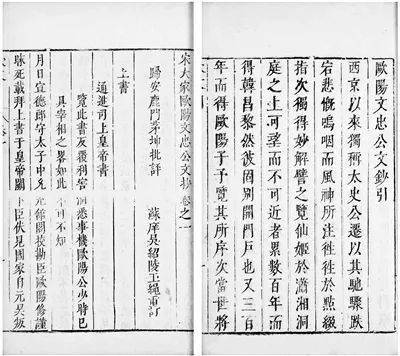 歐陽文忠公文鈔引
西京以來獨稱太史公遷以其馳驟跌
宕悲慨嗚咽而風神所注往往於點綴
指次獨得妙解譬之覽仙姬於瀟湘洞
庭之上可望而不可近者累數百年而
得韓昌黎然彼固別開門戶也又三百
年而得歐陽子予覽其所序次當世將
宋大家歐陽文忠公文抄卷之一
歸安鹿門茅坤批評 吳紹陵玉繩重訂
上書
通進司上皇帝書
覽此書反覆利害洞悉事機歐陽公少時已
具宰相之畧如此不可不知
月日宣德郎守太子中允充館閣校勘臣歐陽修謹
昧死載拜上書于皇帝闕下臣伏見國家自元昊叛